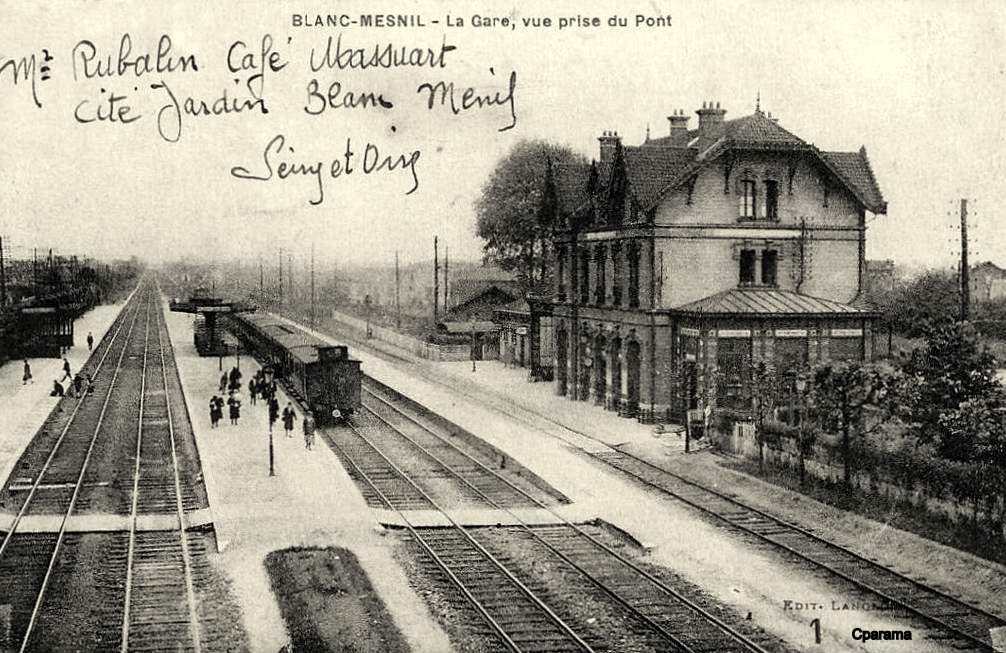 BLANC-MESNIL - La Gare, vue prise du Pont
Mr Rubalin Café Massuart
Cité Jardin Blanc Ménil
Seine et Oise
EDIT.
1
Cparama